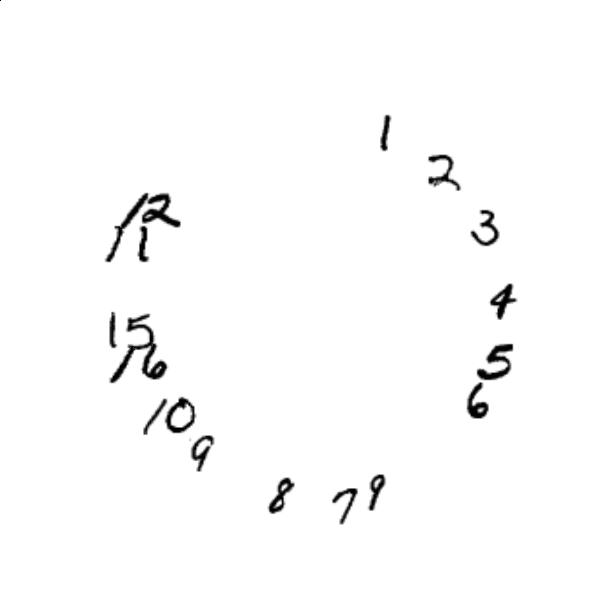 1
2
3
4
5
6
9
7
8
9
10
16
15
11
12